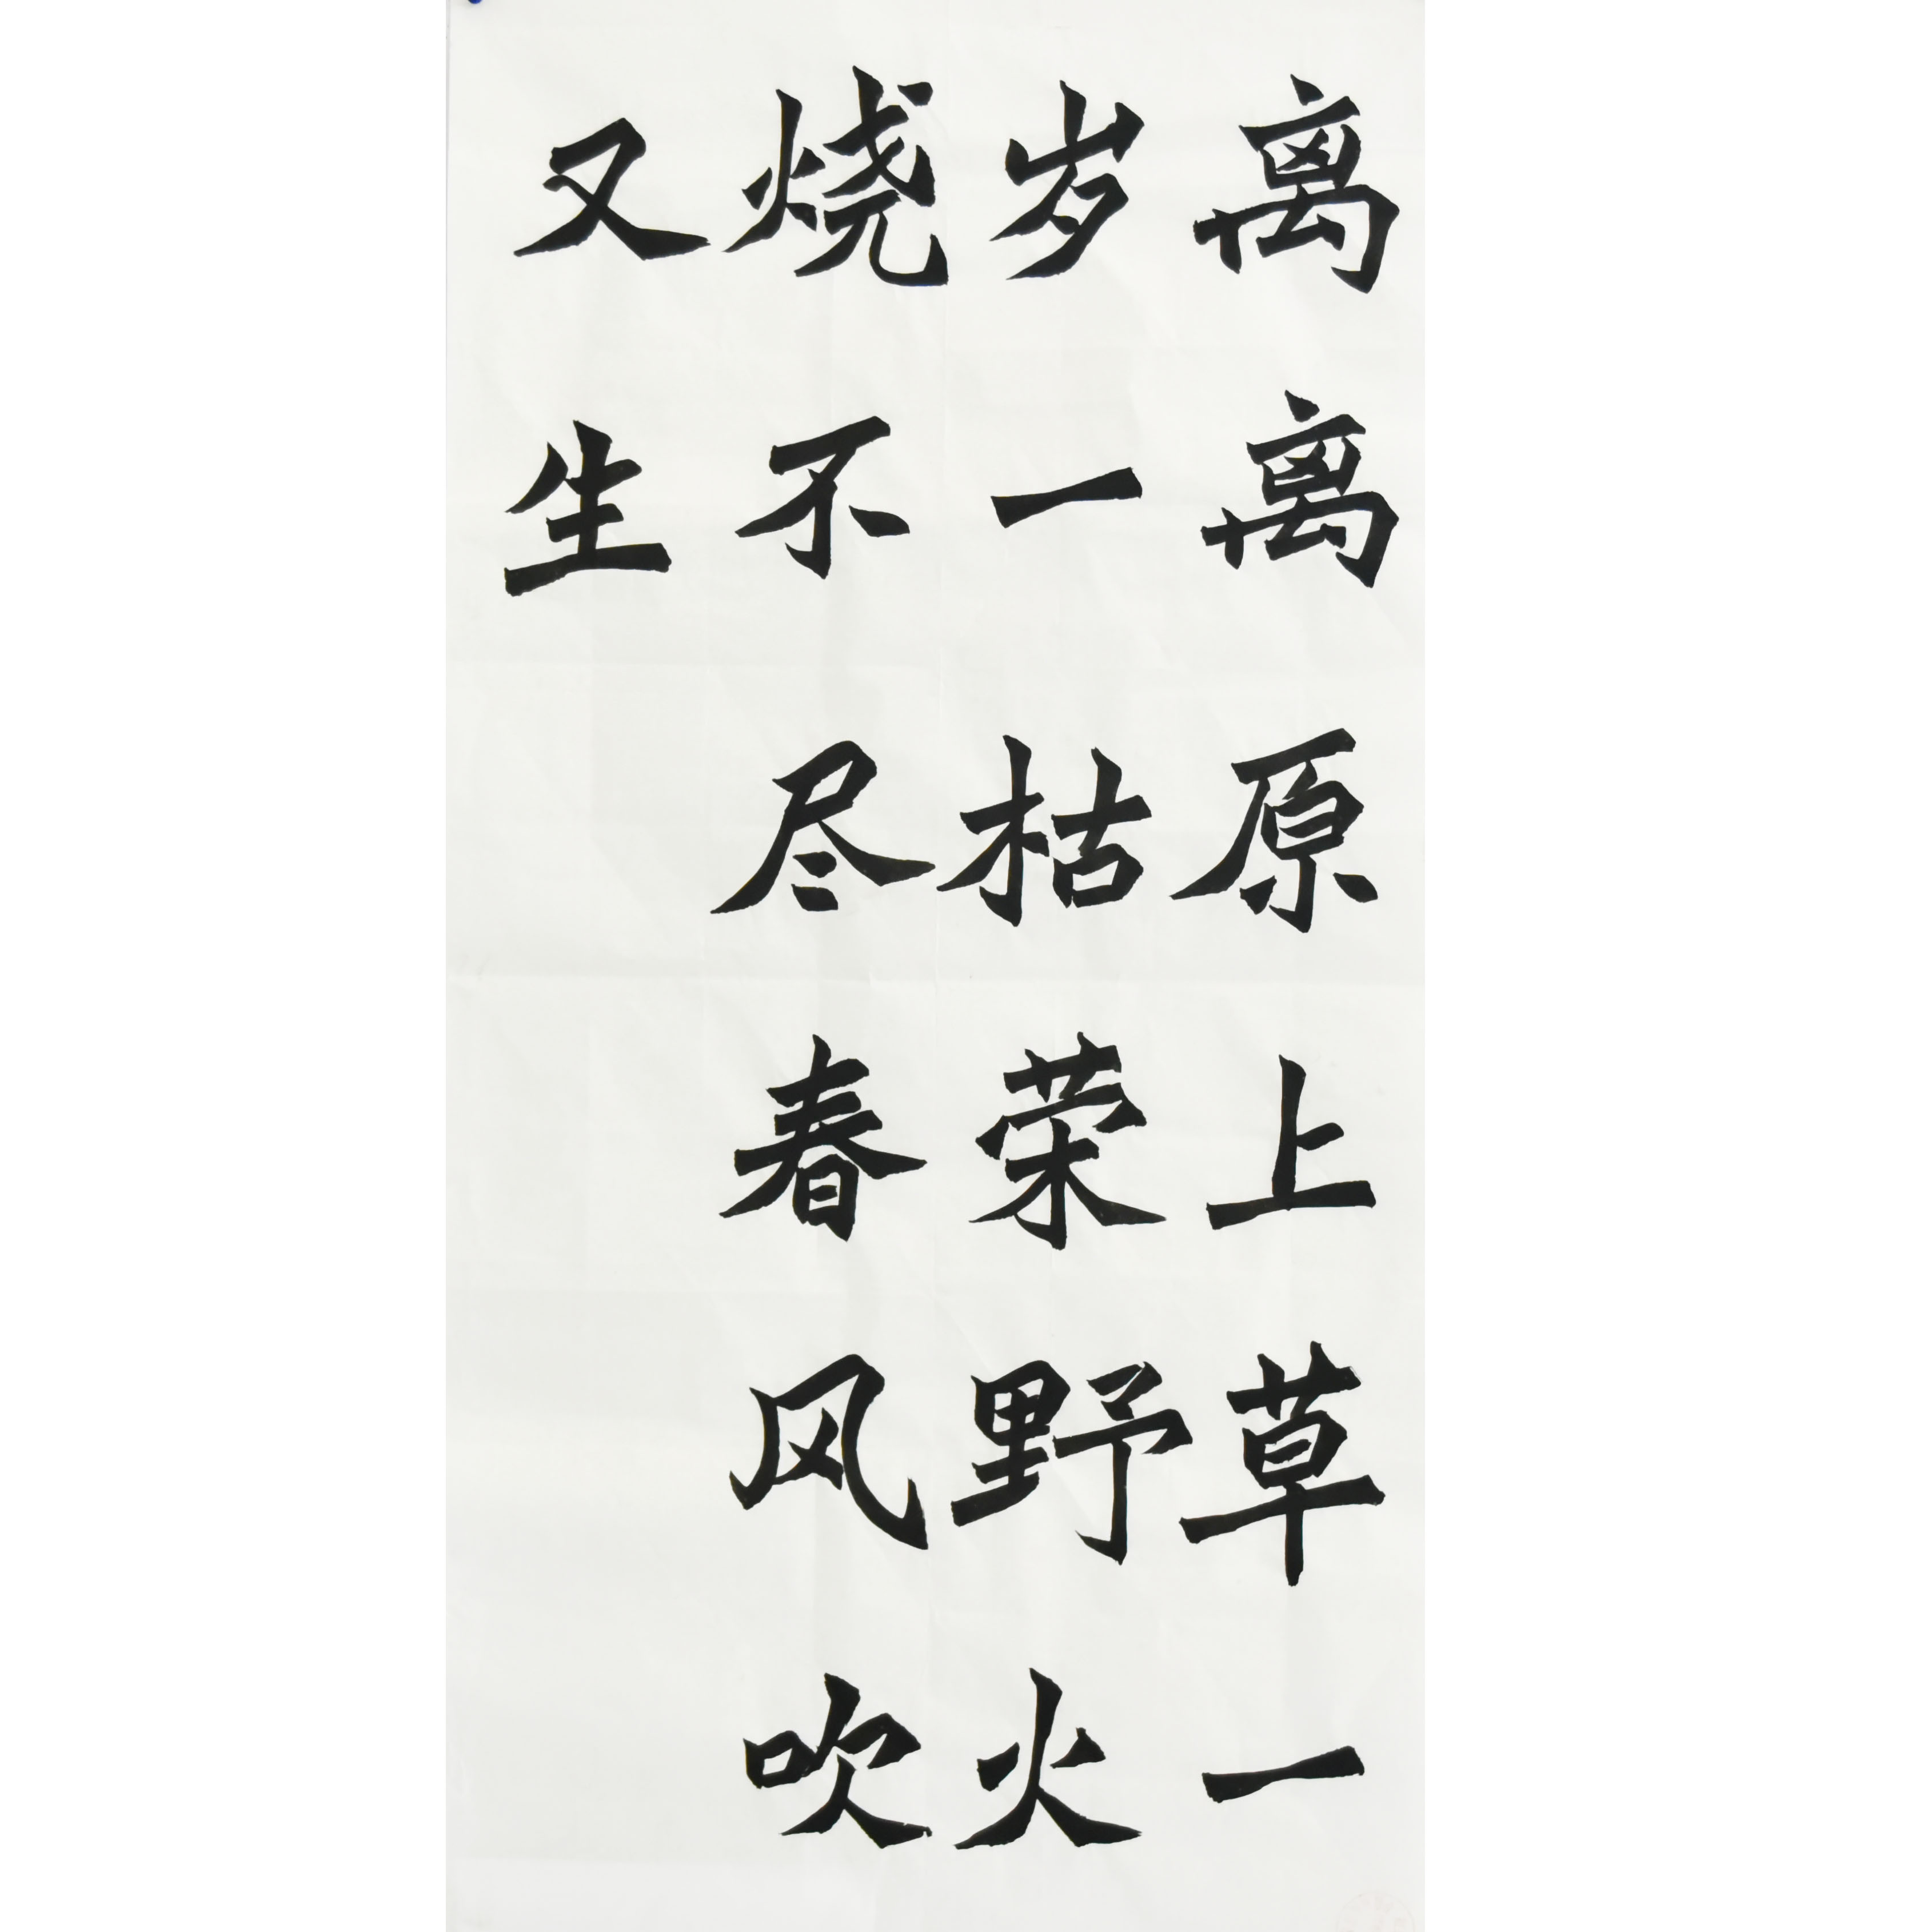 离离原上草一
岁一枯荣野火
烧不尽春风吹
又生